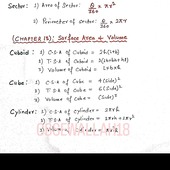 Sector: 1) Area of Sector: θ/360 × πr²
2) Perimeter of sector: θ/360 × 2πr
(CHAPTER 13): Surface Area & Volume
Cuboid: 1) C.S.A of Cuboid = 2h(l+b)
2) T.S.A of Cuboid = 2(lb+bh+hl)
3) Volume of Cuboid = l×b×h
Cube: 1) C.S.A of Cube = 4(Side)²
2) T.S.A of Cube = 6(Side)²
3) Volume of Cube = (Side)³
Cylinder: 1) C.S.A of Cylinder = 2πrh
2) T.S.A of Cylinder = 2πrh + 2πr²
3) Volume of Cylinder = πr²h